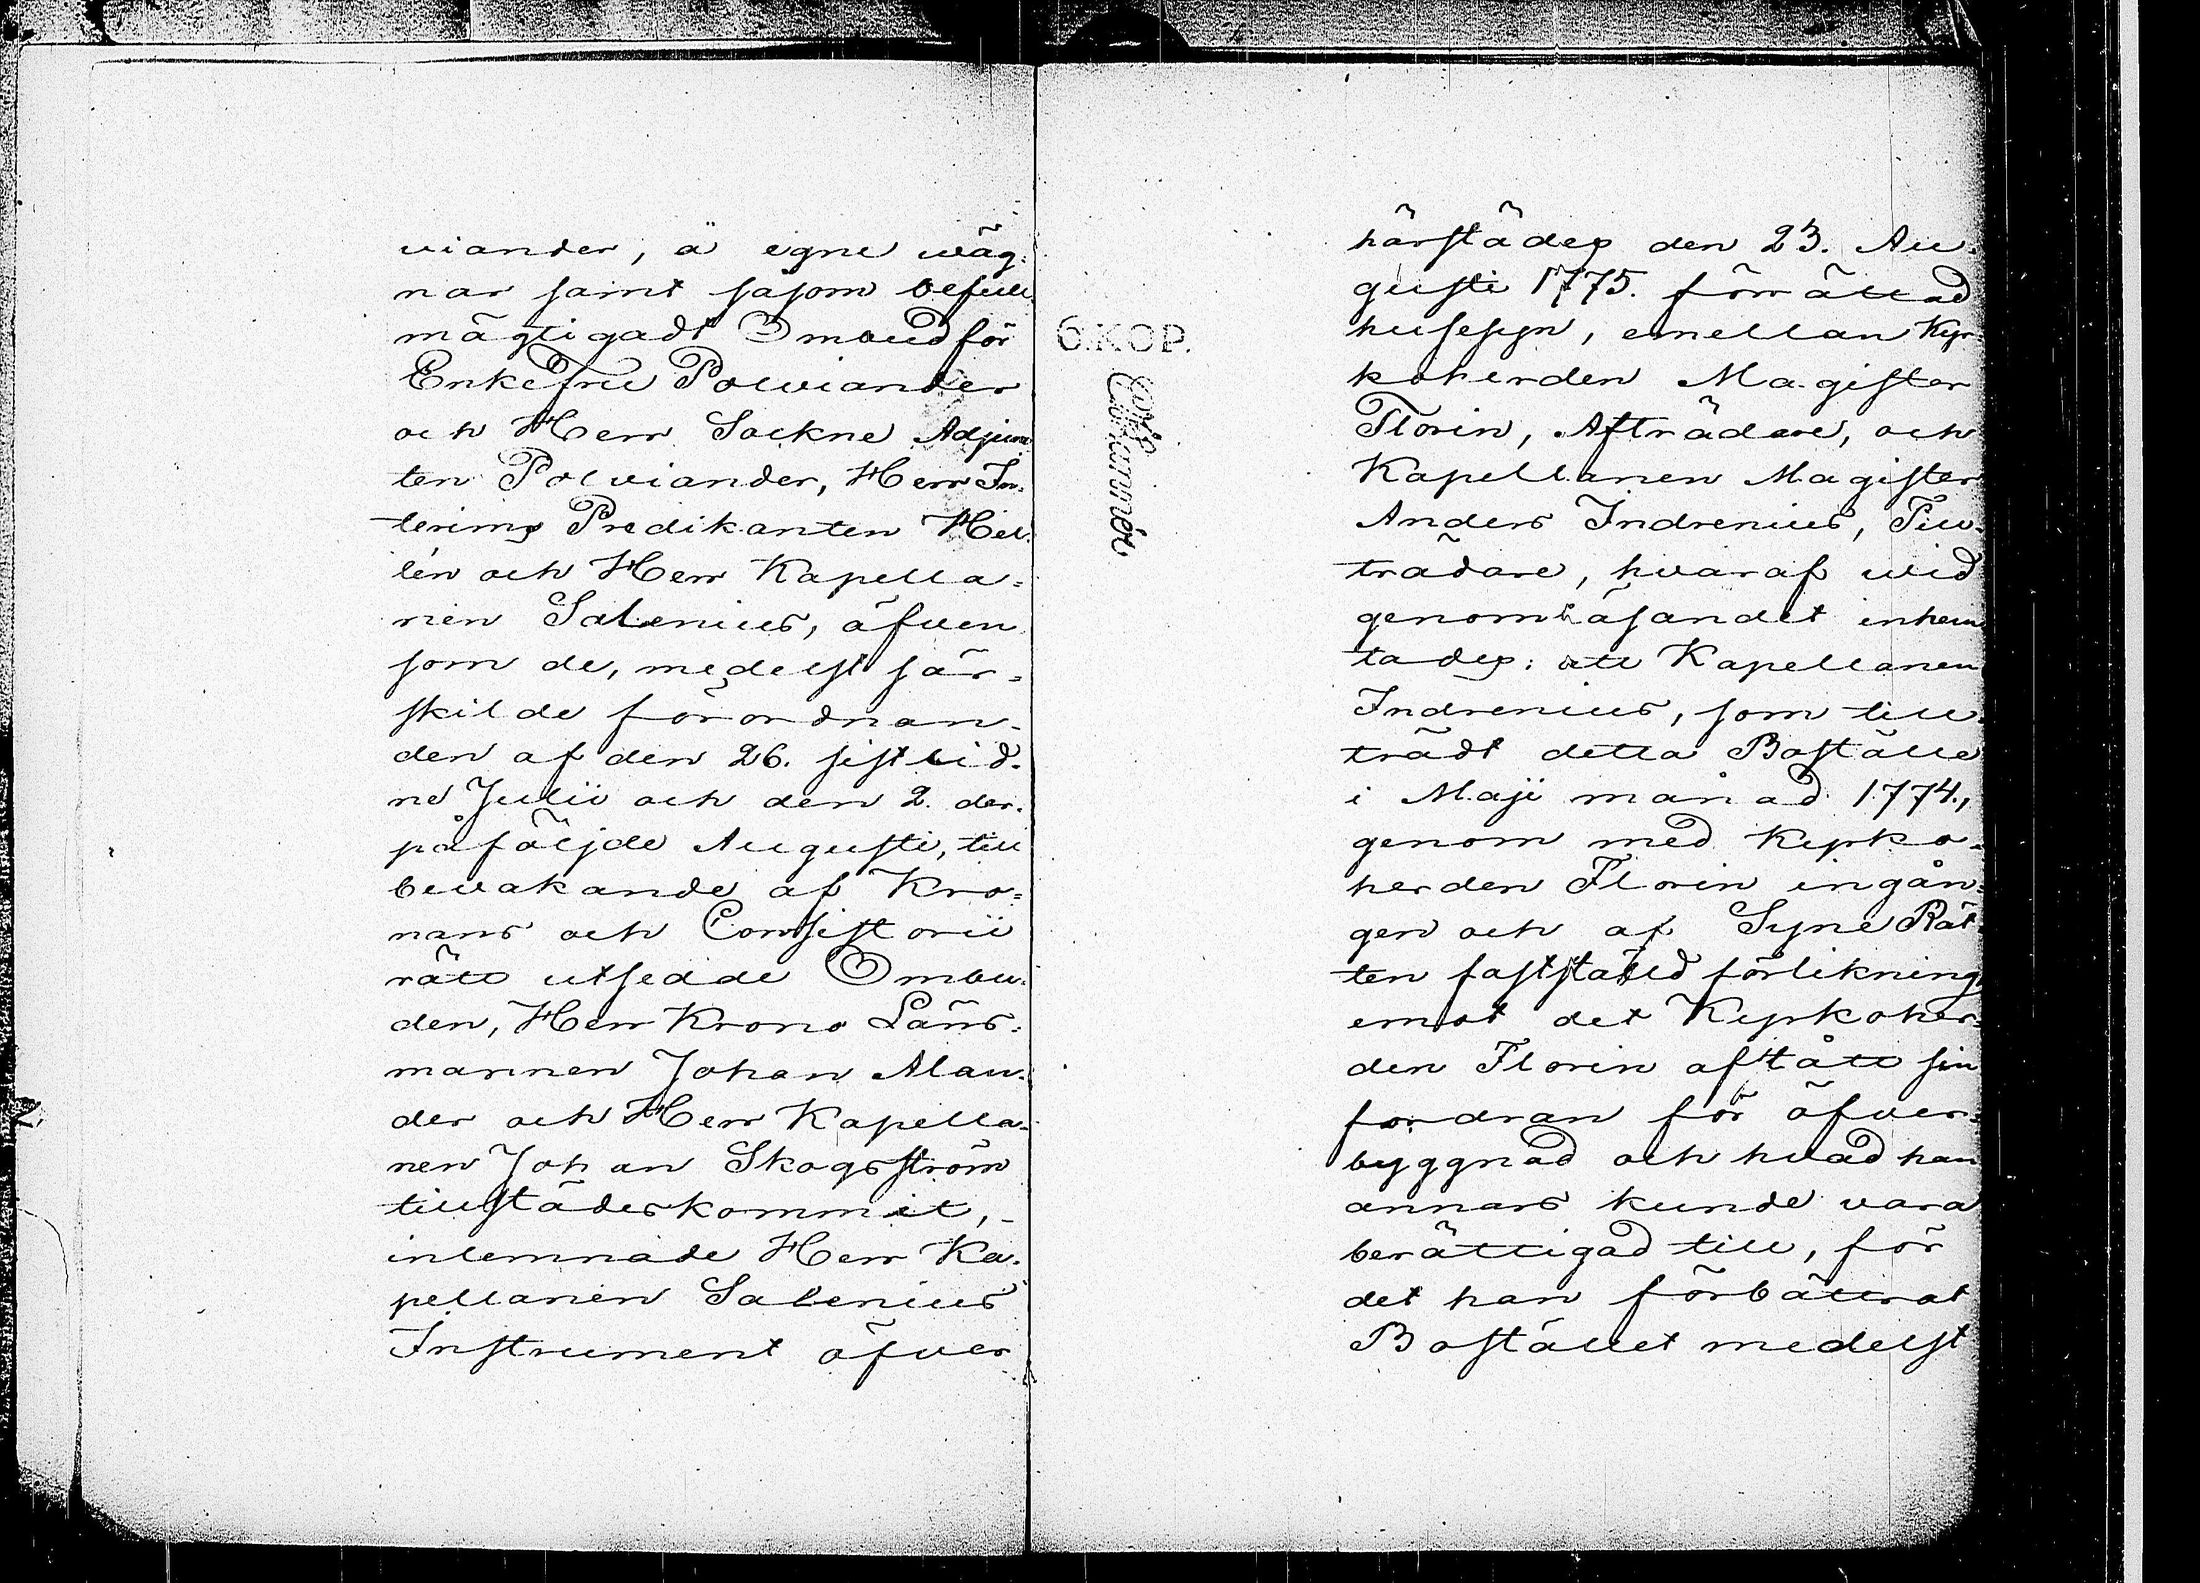 viander, å egne wäg-
nar samt såsom befull-
mägtigadt Ombud för
Enkefru Polviander
och Herr Sockne Adjunc-
ten Polviander, Herr In-
terims Predikanten Hel-
lén och Herr Kapella-
nen Salenius, äfven
som de, medelst sär-
skilde förordnan-
den af den 26. sistlid-
ne Julii och den 2. der-
påföljde Augusti, till
bevakande af Kro-
nans och Consistorii
rätt utsedde Ombu-
den, Herr Krono Läns-
mannen Johan Alan-
der och Herr Kapella-
nen Johan Skogström
tillstädeskommit, -
inlemnade Herr Ka-
pellanen Salenius
Instrument öfver
6.KOP.
härstädes den 23. Au-
gusti 1775. förrättad
husesyn, emellan Kyr-
koherden Magister
Florin, Afträdare, och
Kapellanen Magister
Anders Indrenius, Till-
trädare, hvaraf wid
genomläsandet inhem-
tades: att Kapellanen
Indrenius, som till-
trädt detta Boställe
i Maji månad 1774.,
genom med Kyrko-
herden Florin ingån-
gen och af Syne Rät-
ten fastställd förlikning
emot det Kyrkoher-
den Florin aftått sin
fordran för öfver-
byggnad och hvad han
annars kunde vara
berättigad till, för
det han förbättrat
Bostället medelst